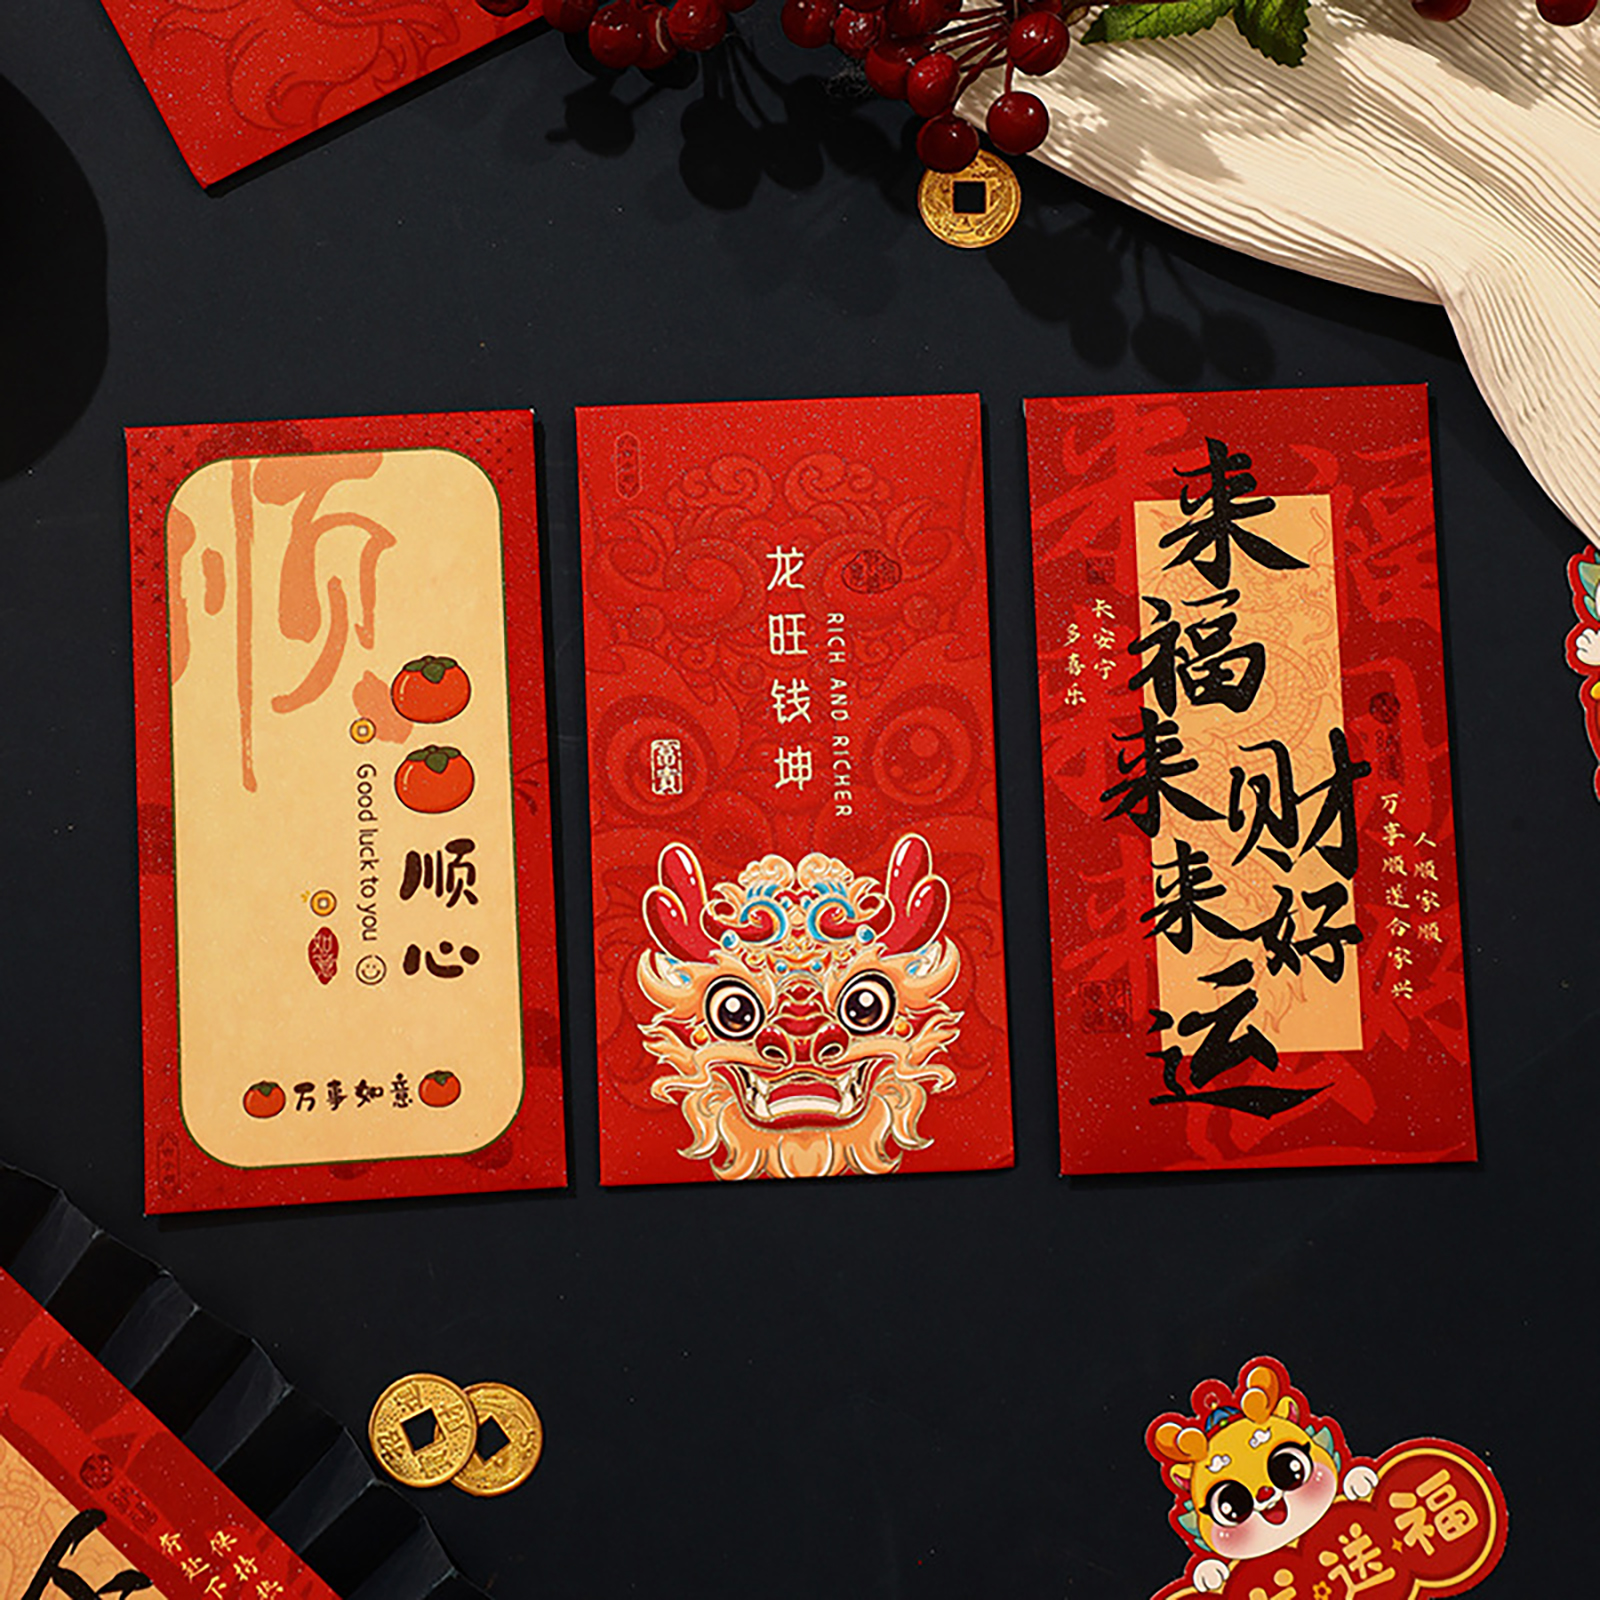 顺
顺心
Good luck to you
如意
万事如意
龙旺钱坤
RICH AND RICHER
富贵
来福来财
来好运
长安宁
多喜乐
万事顺遂合家兴
人顺家顺
送福
奔赴
保持热